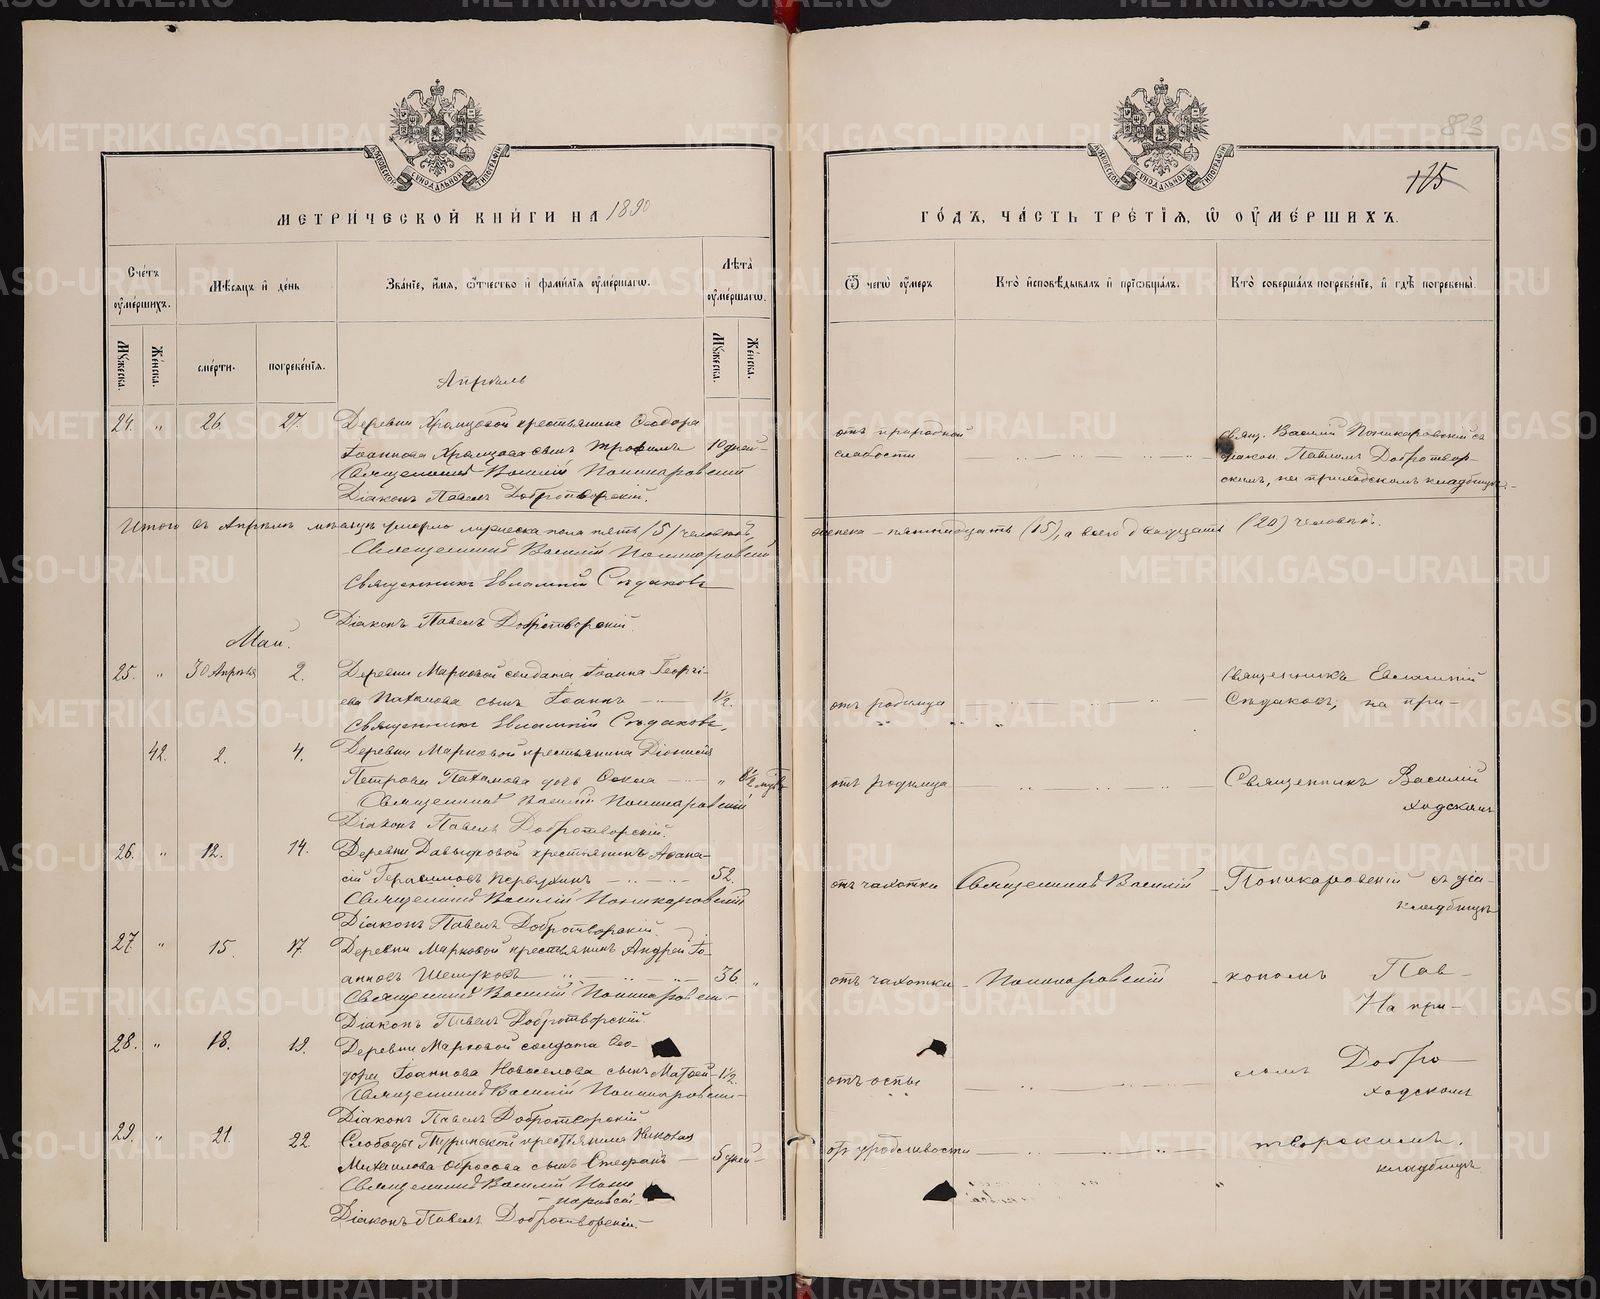 МЕТРИЧЕСКОЙ КНИГИ НА 1890
Счетъ оумершихъ.
Мѣсяцъ и день
Званіе, имя, ѿчество и фамилія оумершагѡ.
Лѣта оумершагѡ.
Мужеска.
Женска.
смерти.
погребенія.
Мужеска.
Женска.
Апрѣль
24. " 26. 27. Деревни Храмцовой крестьянина Ѳеодора
Іоаннова Храмцова сынъ Трофимъ 10 дней
Священникъ Василій Поникаровскій
Діаконъ Павелъ Добротворскій.
Итого въ Апрѣлѣ мѣсяцѣ умерло мужеска пола пять (5) человѣкъ,
Священникъ Василій Поникаровскій
Священникъ Евлампій Сѣдаковъ
Діаконъ Павелъ Добротворскій.
Май.
25. " 30 Апрѣля 2. Деревни Марковой солдата Іоанна Георгі-
ева Пахомова сынъ Іоаннъ 1½.
Священникъ Евлампій Сѣдаковъ.
42. 2. 4. Деревни Марковой крестьянина Діонисія
Петрова Пахомова дочь " 8½
Священникъ Василій Поникаровскій
Діаконъ Павелъ Добротворскій.
26. " 12. 14. Деревни Давыдковой крестьянинъ Аѳана-
сій Герасимовъ Первухинъ 52.
Священникъ Василій Поникаровскій
Діаконъ Павелъ Добротворскій.
27 " 15. 17. Деревни Марковой крестьянинъ Андрей Іо-
анновъ Шешуковъ 36. "
Священникъ Василій Поникаровскій
Діаконъ Павелъ Добротворскій
28. " 18. 19. Деревни Марковой солдата Ѳео-
дора Іоаннова Новоселова сынъ Матѳей 1½.
Священникъ Василій Поникаровскій
Діаконъ Павелъ Добротворскій
29. " 21. 22 Слободы Туринской крестьянина Николая
Михаилова Обросова сынъ Стефанъ 5 дней
Священникъ Василій Пони-
каровскій
Діаконъ Павелъ Добротворскій.
115
ГОДЪ, ЧАСТЬ ТРЕТІЯ, Ѽ ОУМЕРШИХЪ.
Ѿ чегѡ оумеръ
Кто исповѣдывалъ и пріѡбщалъ.
Кто совершалъ погребеніе, и гдѣ погребены.
отъ природной
слабости
свящ. Василій Поникаровскій съ
діакон. Павломъ Добротвор-
скимъ, на приходскомъ кладбищѣ.
женска – пятнадцать (15), а всего двадцать (20) человѣкъ.
отъ родимца
Священникъ Евлампій
Сѣдаковъ, на при-
отъ родимца
Священникъ Василій
ходскомъ
отъ чахотки Священникъ Василій Поникаровскій съ діа-
кладбищѣ
отъ чахотки Поникаровскій кономъ Пав-
На при-
отъ оспы
ломъ Добро-
ходскомъ
отъ уродливости
творскимъ.
кладбищѣ
METRIKI.GASO-URAL.RU